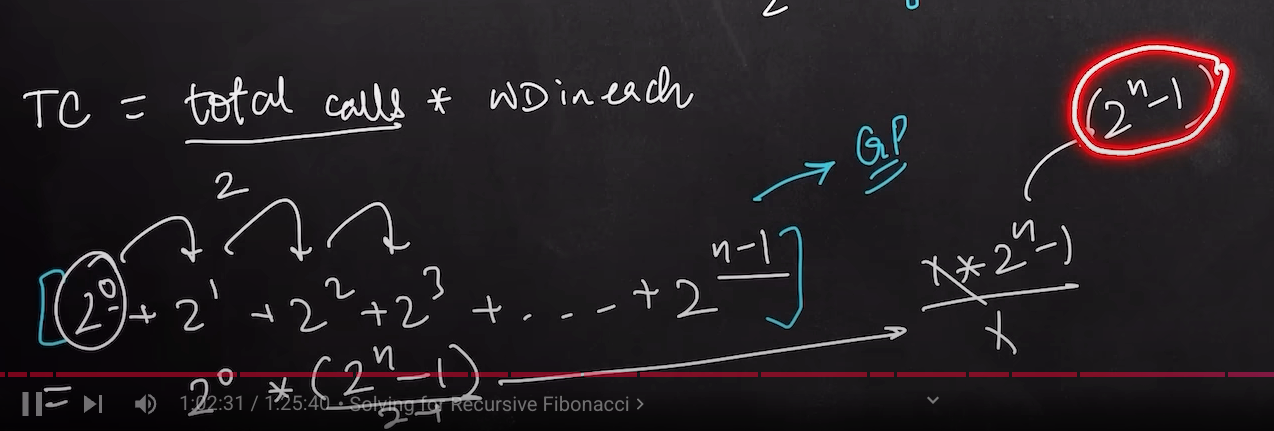 TC = total calls * WD in each
(2^n - 1)
GP
2
[2^0 + 2^1 + 2^2 + 2^3 + . - - - + 2^(n-1)]
1 * 2^n - 1 / 1
= 2^0 * (2^n - 1) / 2-1
1:02:31 / 1:25:40 • Solving for Recursive Fibonacci >